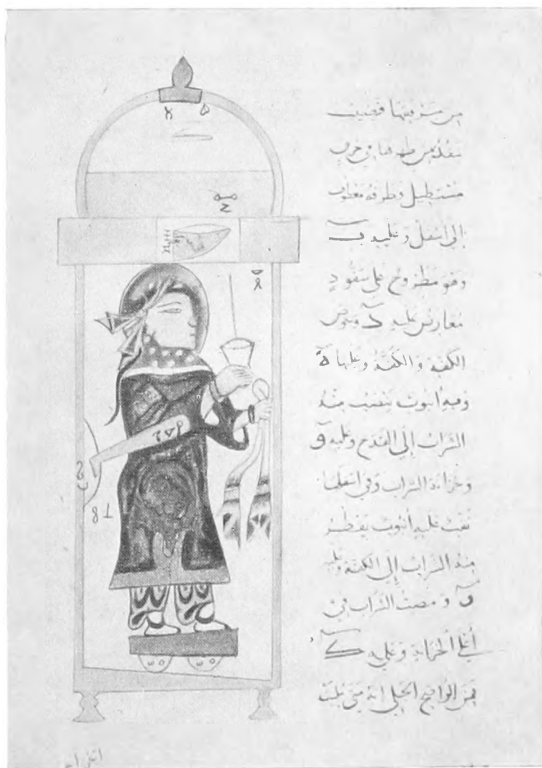 من مرفقها قضيب
ينفذ من ظهرها في خرق
مستطيل وطرفه معطوف
إلى اسفل وعليه ب
وهو مطروح على سفود
معارض عليه
الكفة والكفة وعليها ه
وفيه أنبوب ينصب منه
الشراب إلى القدح وعليه و
وخزانة الشراب وفي اسفلها
ثقب عليه أنبوب يقطر
منه الشراب إلى الكفة وعليه
ومصب الشراب في
أعلى الخزانة وعليه ك
فمن الواضح الجلي انه متى